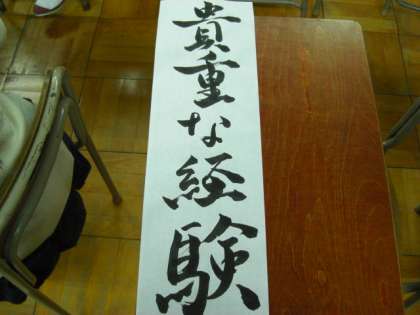 貴重な経験